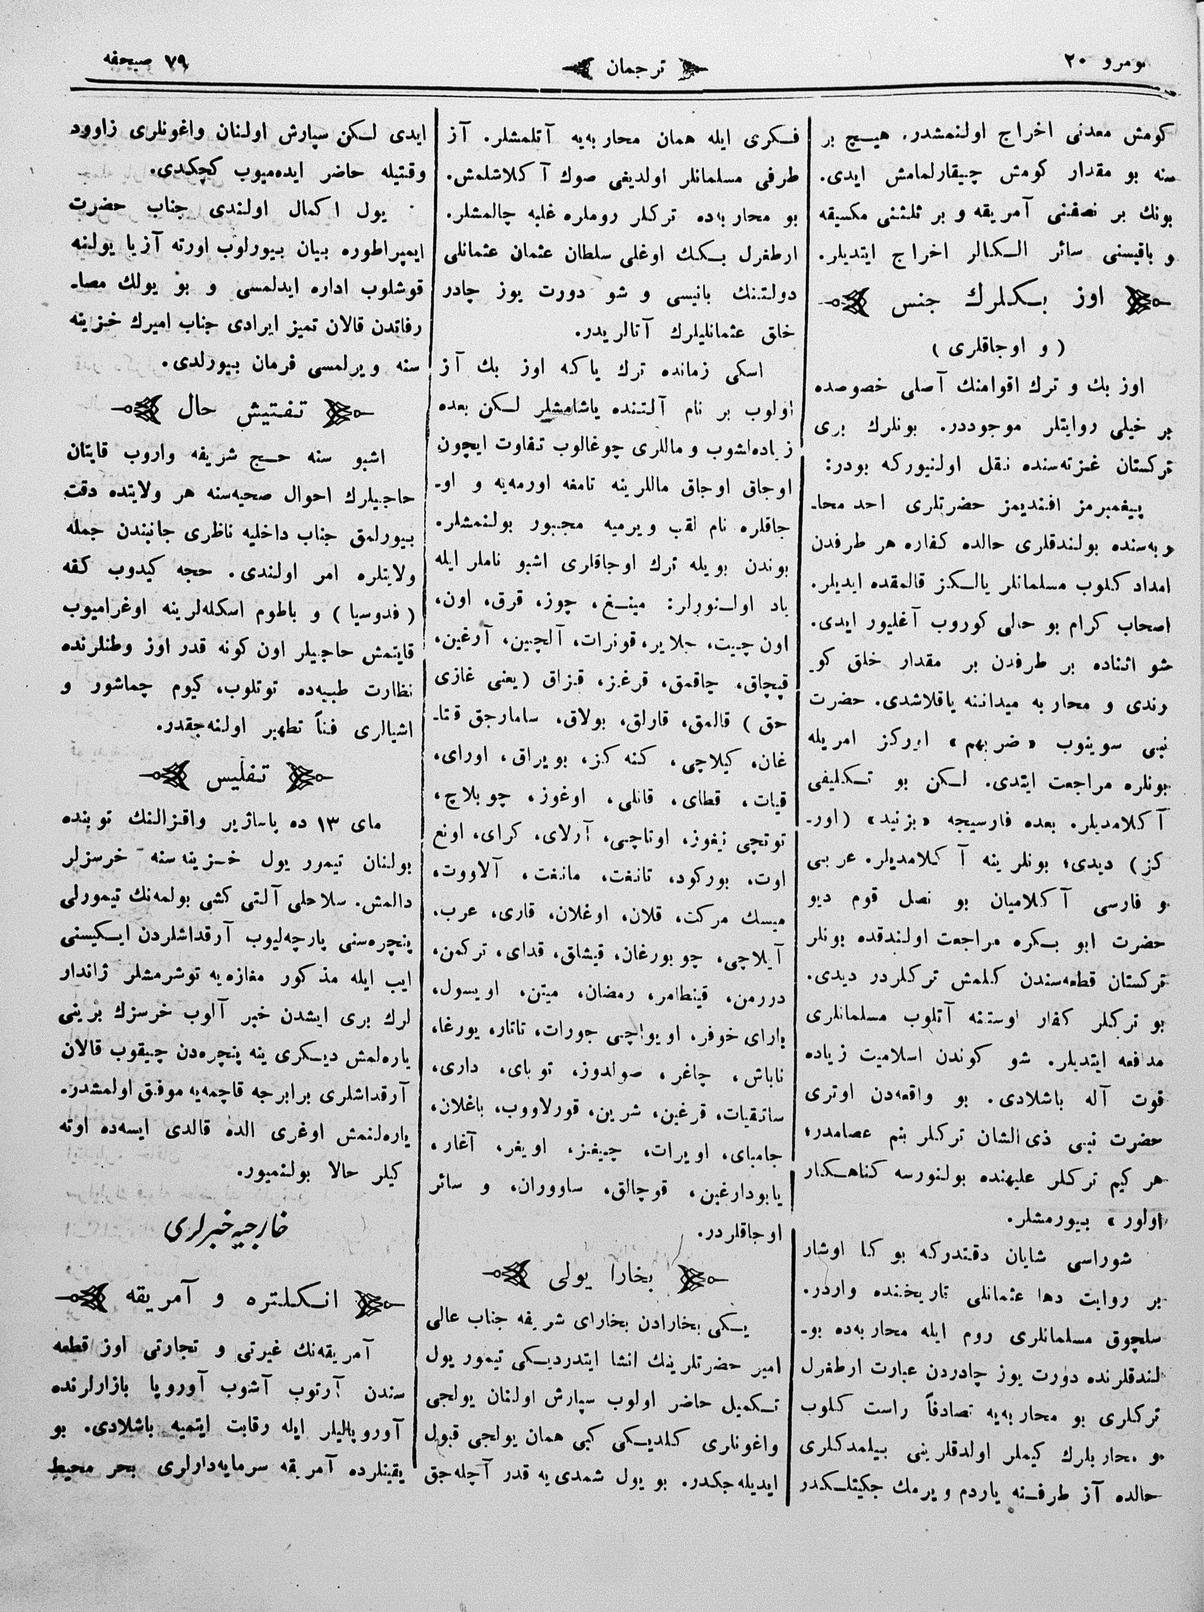 نومرو ٢٠
ترجمان
٧٩ صحیفه
كومش معدنی اخراج اولنمشدر. هیـچ بر
سنه بو مقدار كومش چیقارلمامش ایدی.
بونك بر نصفنی آمریقه و بر ثلثنی مكسیقه
و باقیسنی سائر الـكـالر اخراج ایتدیلر.
اوز بـكلرك جنس
( و اوجاقلری )
اوز بك و ترك اقوامنك آصلی خصوصده
بر خیلی روایتلر موجوددر. بونلرك بری
تركستان غزته‌سنده نقل اولنیوركه بودر:
پیغمبرمز افندیمز حضرتلری احد محا‍ـ
ربه‌سنده بولندقلری حالده كفاره هر طرفدن
امداد كلوب مسلمانلر یالـكز قالمقده ایدیلر.
اصحاب كرام بو حالی كوروب آغلیور ایدی.
شو اثناده بر طرفدن بر مقدار خلق كو‍ـ
رندی و محاربه میداننه یاقلاشدی. حضرت
نبی سوینوب «ضربهم» اوركز امریله
بونلره مراجعت ایتدی. لـكن بو تـكلیفی
آكلامدیلر. بعده فارسیجه «بزنید» (اور‍ـ
كز) دیدی؛ بونلرینه آكلامدیلر. عربی
و فارسی آكلامیان بو نصل قوم دیو
حضرت ابو بـكره مراجعت اولندقده بونلر
تركستان قطعه‌سندن كلمش تركلردر دیدی.
بو تركلر كفار اوستنه آتلوب مسلمانلری
مدافعه ایتدیلر. شو كوندن اسلامیت زیاده
قوت آله باشلادی. بو واقعه‌دن اوتری
حضرت نبی ذی‌الشان تركلر بنم عصامدر؛
هر كیم تركلر علیهنده بولنورسه كناهـكار
اولور» بیورمشلر.
شوراسی شایان دقتدركه بوكا اوشار
بر روایت دها عثمانلی تاریخنده واردر.
سلچوق مسلمانلری روم ایله محاربه‌ده بو‍ـ
لندقلرنده دورت یوز چادردن عبارت ارطغرل
تركلری بو محاربه‌یه تصادفاً راست كلوب
و محاربلرك كیملر اولدقلرینی بیلمدكلری
حالده آز طرفـنه یاردم ویرمك جكیتلـكدر
فـكری ایله همان محاربه‌یه آتلمشلر. آز
طرفی مسلمانلر اولدیغی صوك آكلاشلمش.
بو محاربه‌ده تركلر روملره غلبه چالمشلر.
ارطغرل بـكك اوغلی سلطان عثمان عثمانلی
دولتنك بانیسی و شو دورت یوز چادر
خلق عثمانلیلرك آتالریدر.
اسكی زمانده ترك یاكه اوز بك آز
اولوب بر نام آلتنده یاشامشلر لـكن بعده
زیاده‌لشوب و ماللری چوغالوب تفاوت ایچون
اوجاق اوجاق ماللرینه تامغه اورمه‌یه و او‍ـ
جاقلره نام لقب ویرمیه مجبور بولنمشلر.
بوندن بویله ترك اوجاقلری اشبو ناملر ایله
یاد اولـنورلر: مینـغ، چوز، قرق، اون،
اون چیت، جلایر، قونرات، آلچین، آرغین،
قپچاق، چاقمق، قرغیز، قیزاق (یعنی غازی
حق) قالمق، قارلق، بولاق، سامارجق قتا‍ـ
غان، كیلاچی، كنه كز، بویراق، اورای،
قیات، قطای، قانلی، اوغوز، چوبلاچ،
توتچی نیغوز، اوتاچی، آرلای، كرای، اونع
اوت، بوركود، تانغت، مانغت، آلاووت،
میسك مركت، قلان، اوغلان، قاری، عرب،
آیلاچی، چوبورغان، قیشاق، قدای، تركمن،
دررمن، قینطامر، رمضان، میتن، اویسول،
یارای خوفر، اویواچی جورات، تاتار، یورغا،
ناباش، چاغر، صولدوز، توبای، داری،
سانقیات، قرغین، شرین، قورلاووب، باغلان،
جامبای، اویرات، چیغیز، اویغر، آغار،
یابودارغین، قوچالق، ساووران، و سائر
اوجاقلردر.
بخارا یولی
یـكی بخارادن بخارای شریفه جناب عالی
امیر حضرتلرینك انشا ایتدردیـكی تیمور یول
تـكمیل حاضر اولوب سپارش اولنان یولجی
واغونلری كلدیـكی كبی همان یولجی قبول
ایدیله‌جكدر. بو یول شمدی‌یه قدر آچله‌جق
ایدی لـكن سپارش اولنان واغونلری زاوود
وقتیله حاضر ایده‌میوب كچكدی.
یول اكمال اولندی جناب حضرت
ایمپراطوره بیان بیورلوب اورته آزیا یولنه
قوشلوب اداره ایدلمسی و بو یولك مصا‍ـ
رفاتدن قالان تمیز ایرادی جناب امیرك خزینه
سنه ویرلمسی فرمان بیورلدی.
تـفـتیش حال
اشبو سنه حـج شریفه واروب قایتان
حاجیلرك احوال صحیه‌سنه هر ولایتده دقت
بیورلمق جناب داخلیه ناظری جانبندن جمله
ولایتلره امر اولندی. حجه كیدوب كفه
(فدوسیا) و باطوم اسكله‌لرینه اوغرامیوب
قایتمش حاجیلر اون كونه قدر اوز وطنلرنده
نظارت طبیه‌ده توتلوب، كیوم چماشور و
اشیالری فناً تطهیر اولنه‌جقدر.
تـفلیس
مای ١٣ ده باساژیر واقزالنك توبنده
بولنان تیمور یول خـزینه‌سنه خرسزلر
دالمش. سلاحلی آلتی كشی بولمه‌نك تیمورلی
پنچره‌سنی پارچه‌لیوب آرقداشلردن ایـكیسنی
ایب ایله مذكور مغازه‌یه توشرمشلر ژاندار
لرك بری ایشدن خبر آلوب خرسزك برینی
یاره‌لمش دیـكری ینه پنچره‌دن چیقوب قالان
آرقداشلری برابرجه قاچمه‌یه موفق اولمشدر.
یاره‌لنمش اوغری الده قالدی ایسه‌ده اوته
كیلر حالا بولنمیور.
خارجیه خبرلری
انـكلتره و آمریقه
آمریقه‌نك غیرتی و تجارتی اوز قطعه
سندن آرتوب آشوب آوروپا بازارلرنده
آوروپالیلر ایله رقابت ایتمیه باشلادی. بو
یقینلرده آمریقه سرمایه‌دارلری بحر محیط